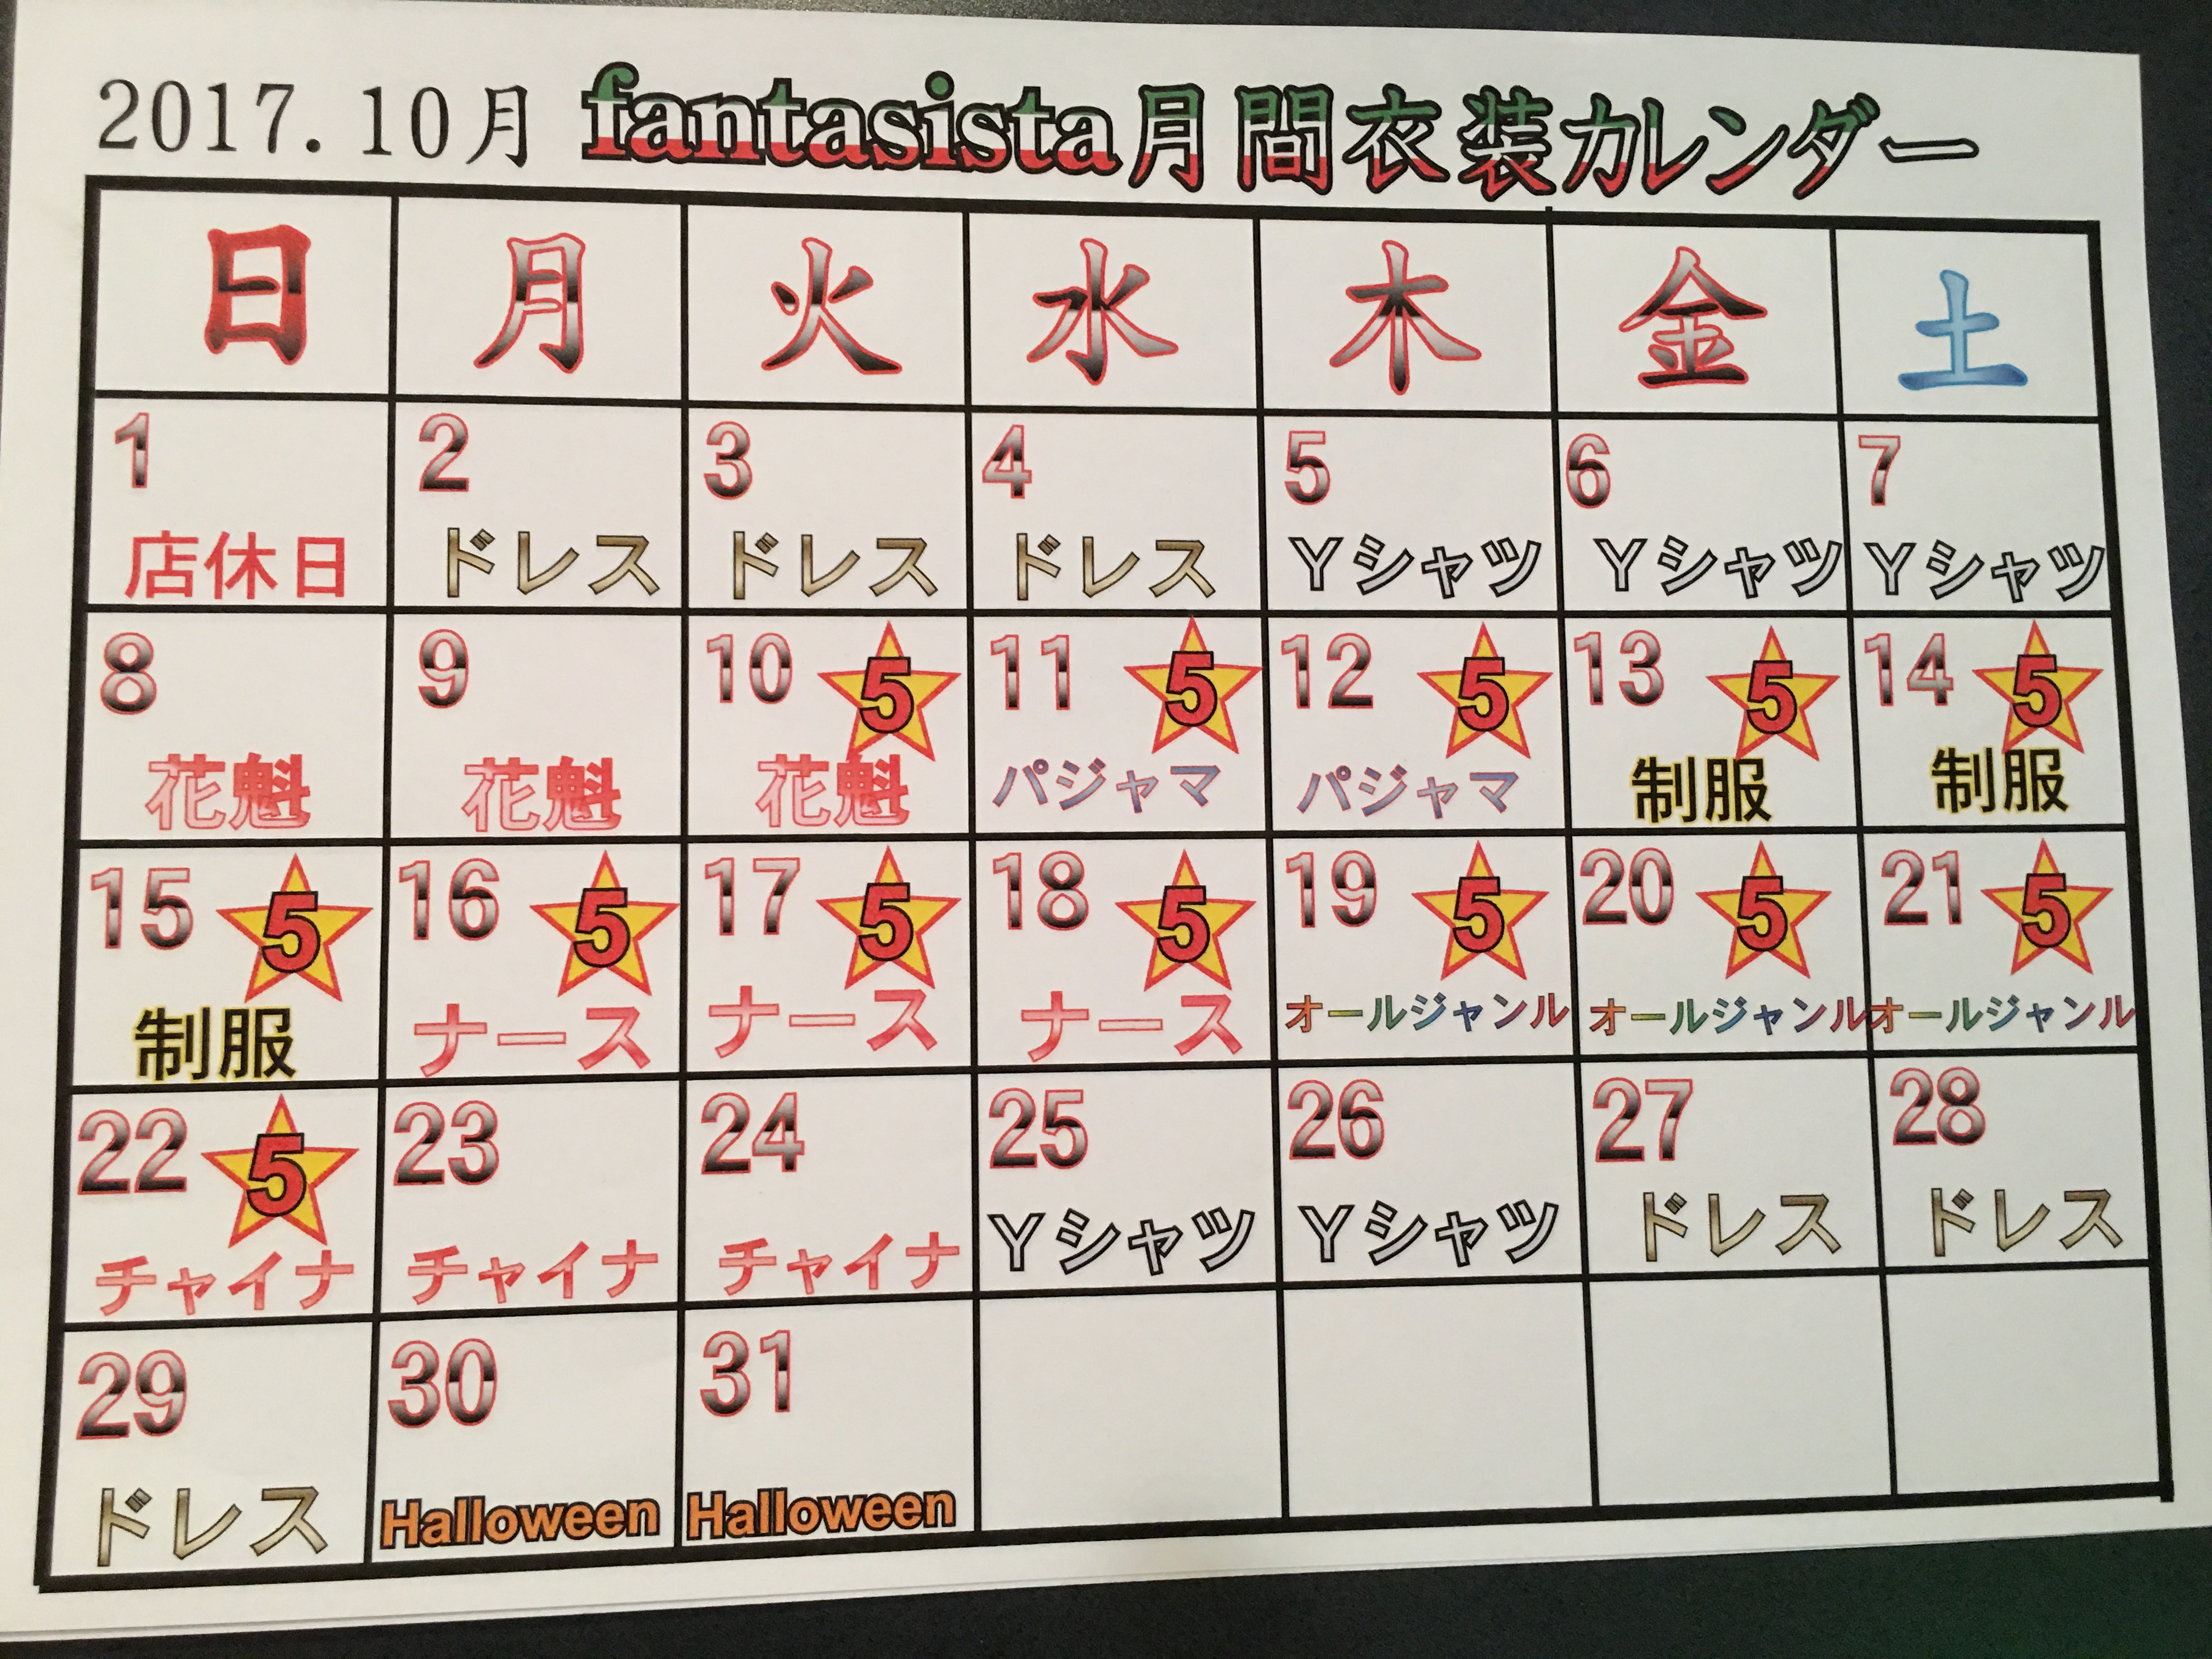 2017.10月 fantasista月間衣装カレンダー
日 月 火 水 木 金 土
1 2 3 4 5 6 7
店休日 ドレス ドレス ドレス Yシャツ Yシャツ Yシャツ
8 9 10 5 11 5 12 5 13 5 14 5
花魁 花魁 花魁 パジャマ パジャマ 制服 制服
15 5 16 5 17 5 18 5 19 5 20 5 21 5
制服 ナース ナース ナース オールジャンル オールジャンル オールジャンル
22 5 23 24 25 26 27 28
チャイナ チャイナ チャイナ Yシャツ Yシャツ ドレス ドレス
29 30 31
ドレス Halloween Halloween